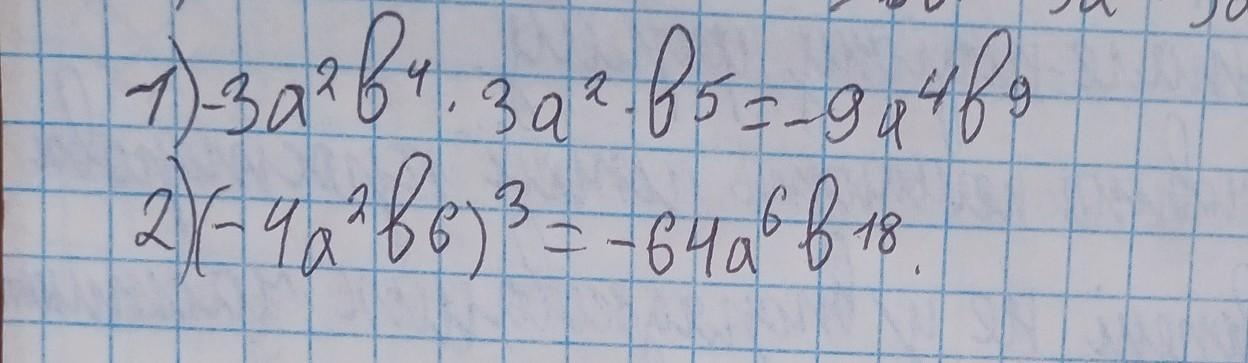 1) -3a²b⁴ · 3a² · b⁵ = -9a⁴b⁹
2) (-4a²b⁶)³ = -64a⁶b¹⁸.